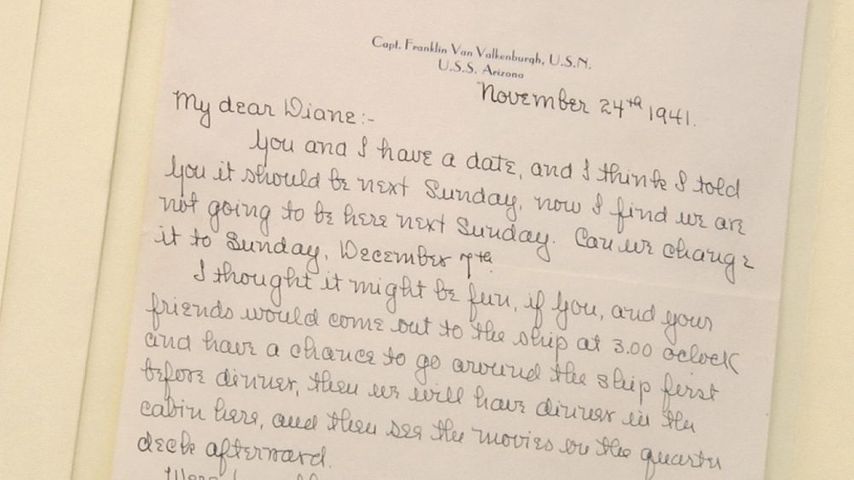 Capt. Franklin Van Valkenburgh, U.S.N.
U.S.S. Arizona
November 24th 1941.
My dear Diane:-
You and I have a date, and I think I told
you it should be next Sunday, now I find we are
not going to be here next Sunday. Can we change
it to Sunday, December 7th.
I thought it might be fun, if you, and your
friends would come out to the ship at 3.00 oclock
and have a chance to go around the ship first
before dinner, then we will have dinner in the
cabin here, and then see the movies on the quarter
deck afterward.